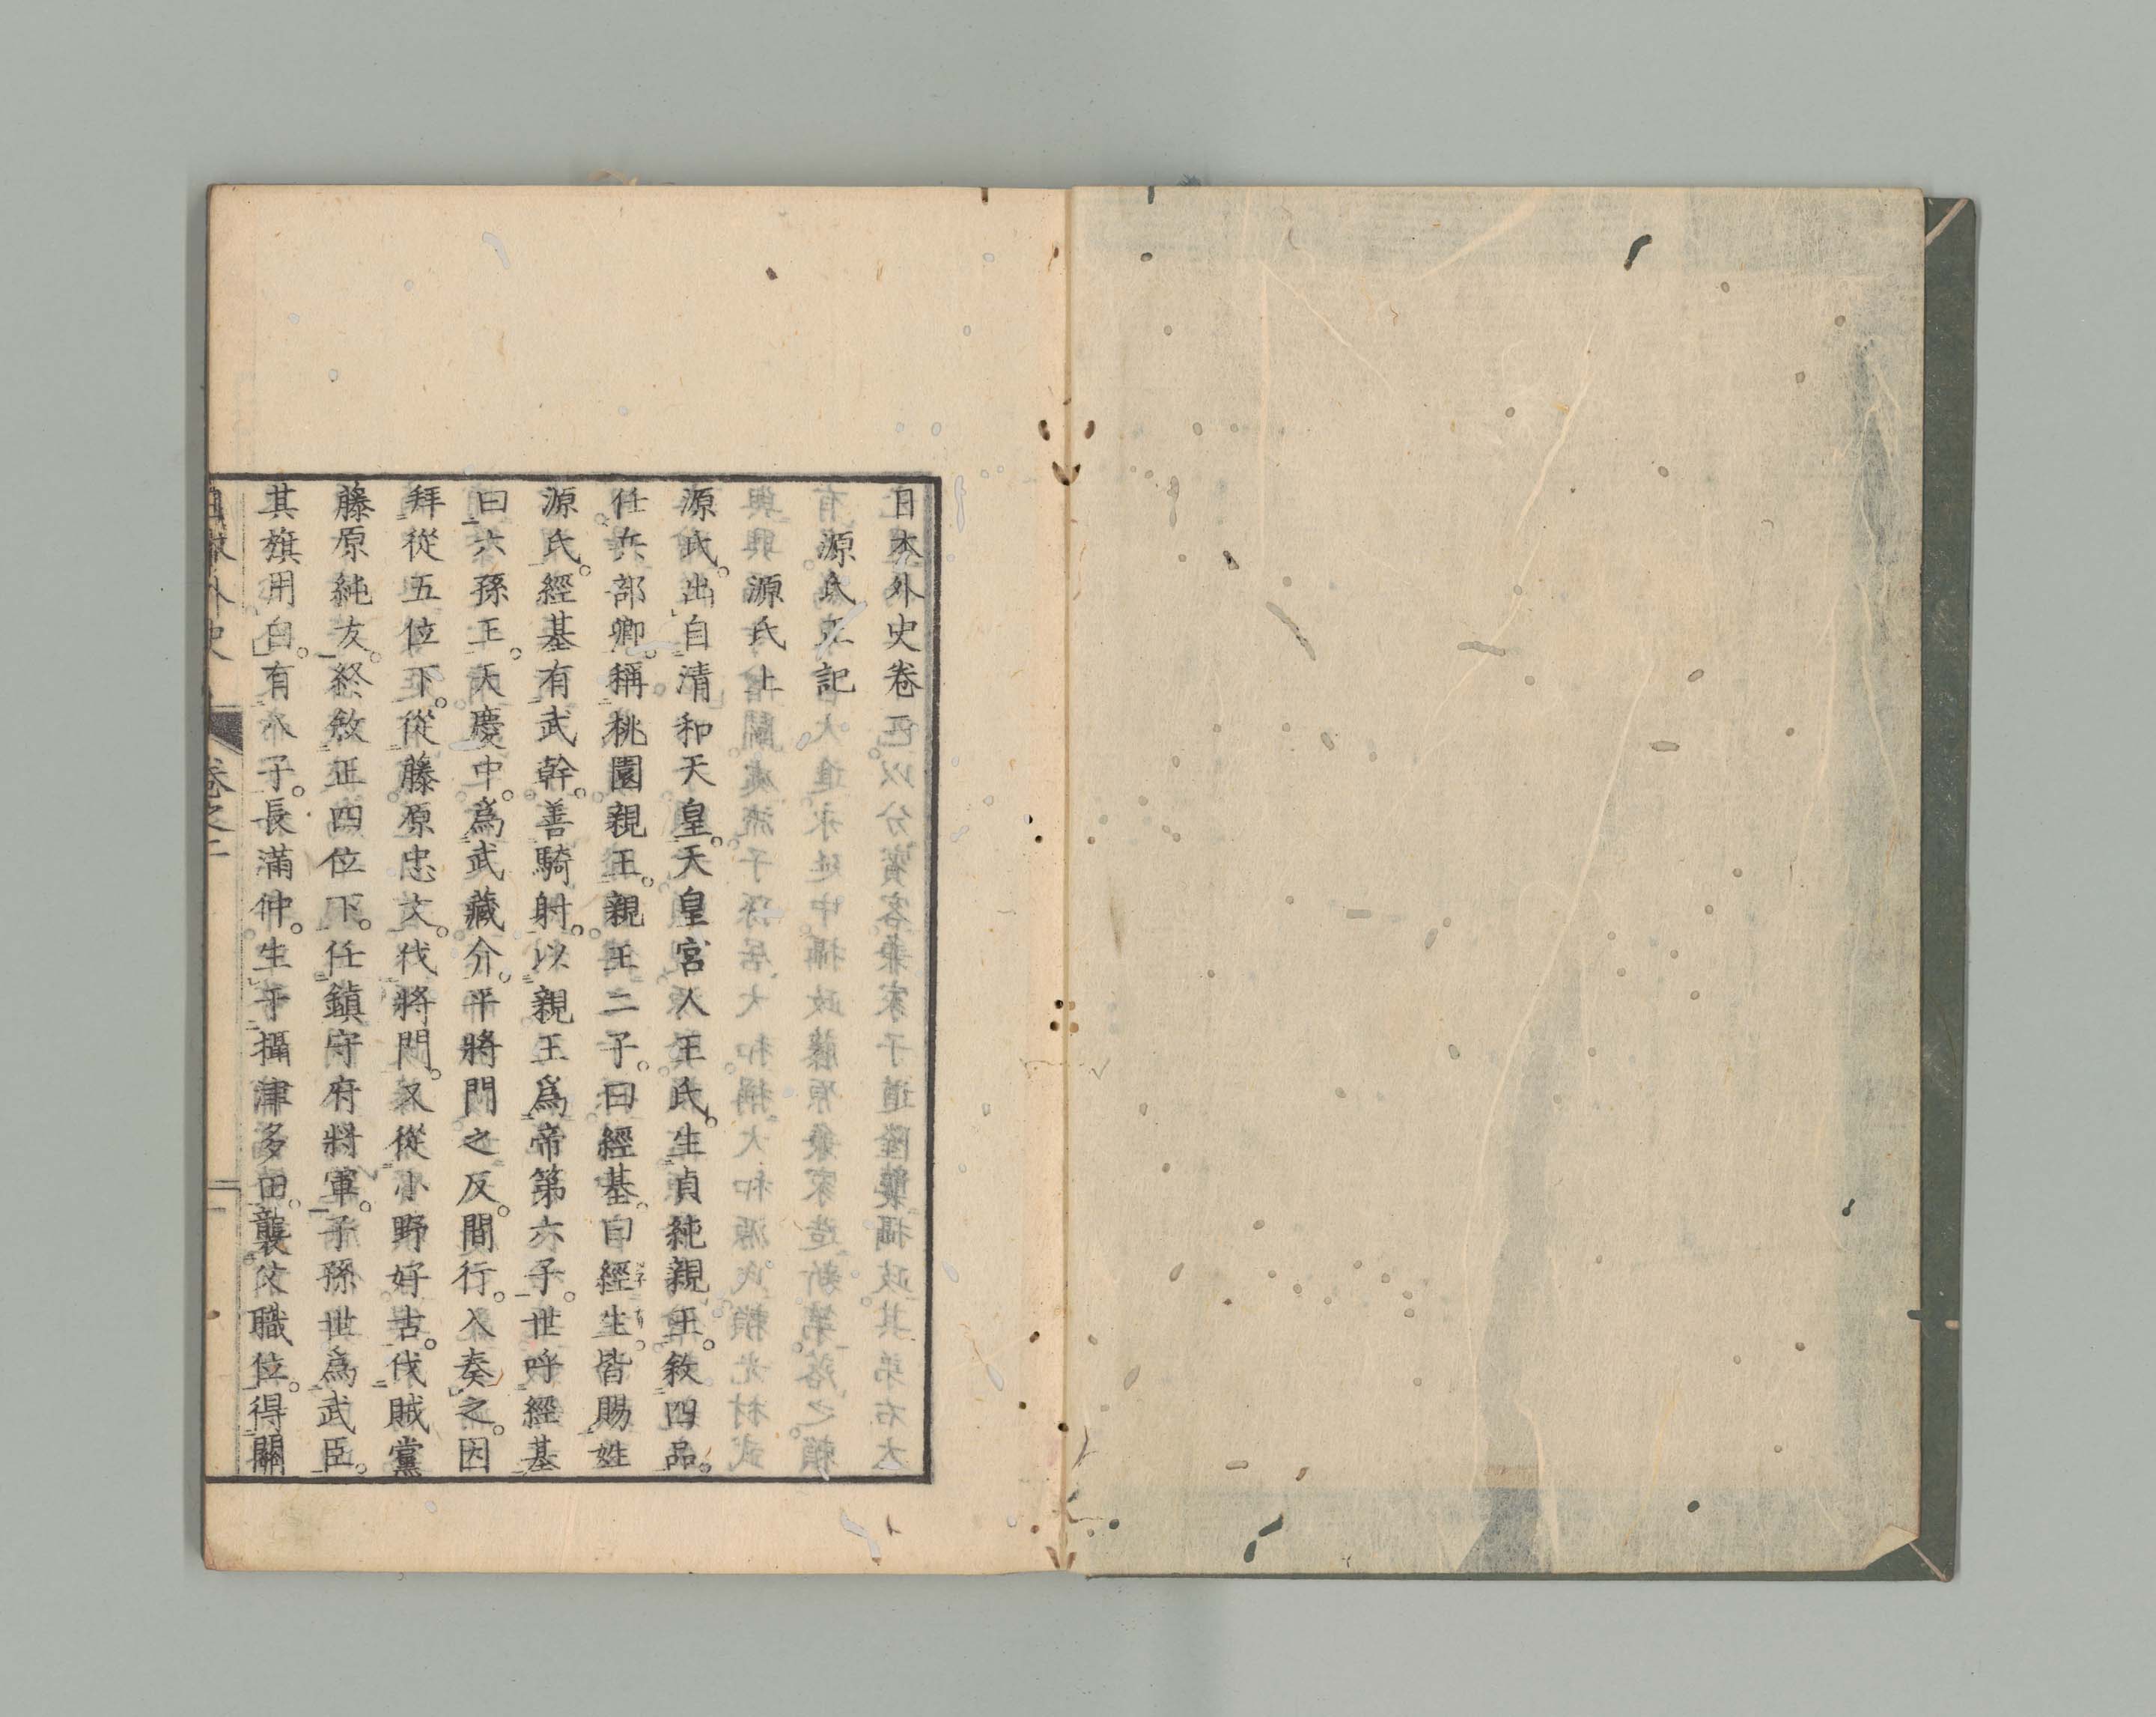 日本外史卷二
源氏正記
源氏上
源氏。出自清和天皇。天皇宮人王氏。生貞純親王。敘四品。
任兵部卿。稱桃園親王。親王二子。曰經基。曰經生。皆賜姓
源氏。經基有武幹。善騎射。以親王爲帝第六子。世呼經基
曰六孫王。天慶中。爲武藏介。平將門之反。間行。入奏之。因
拜從五位下。從藤原忠文。伐將門。又從小野好古。伐賊黨
藤原純友。終敘正四位下。任鎮守府將軍。子孫世爲武臣。
其旗用白。有八子。長滿仲。生于攝津多田。襲父職位。得關
外史 卷之二